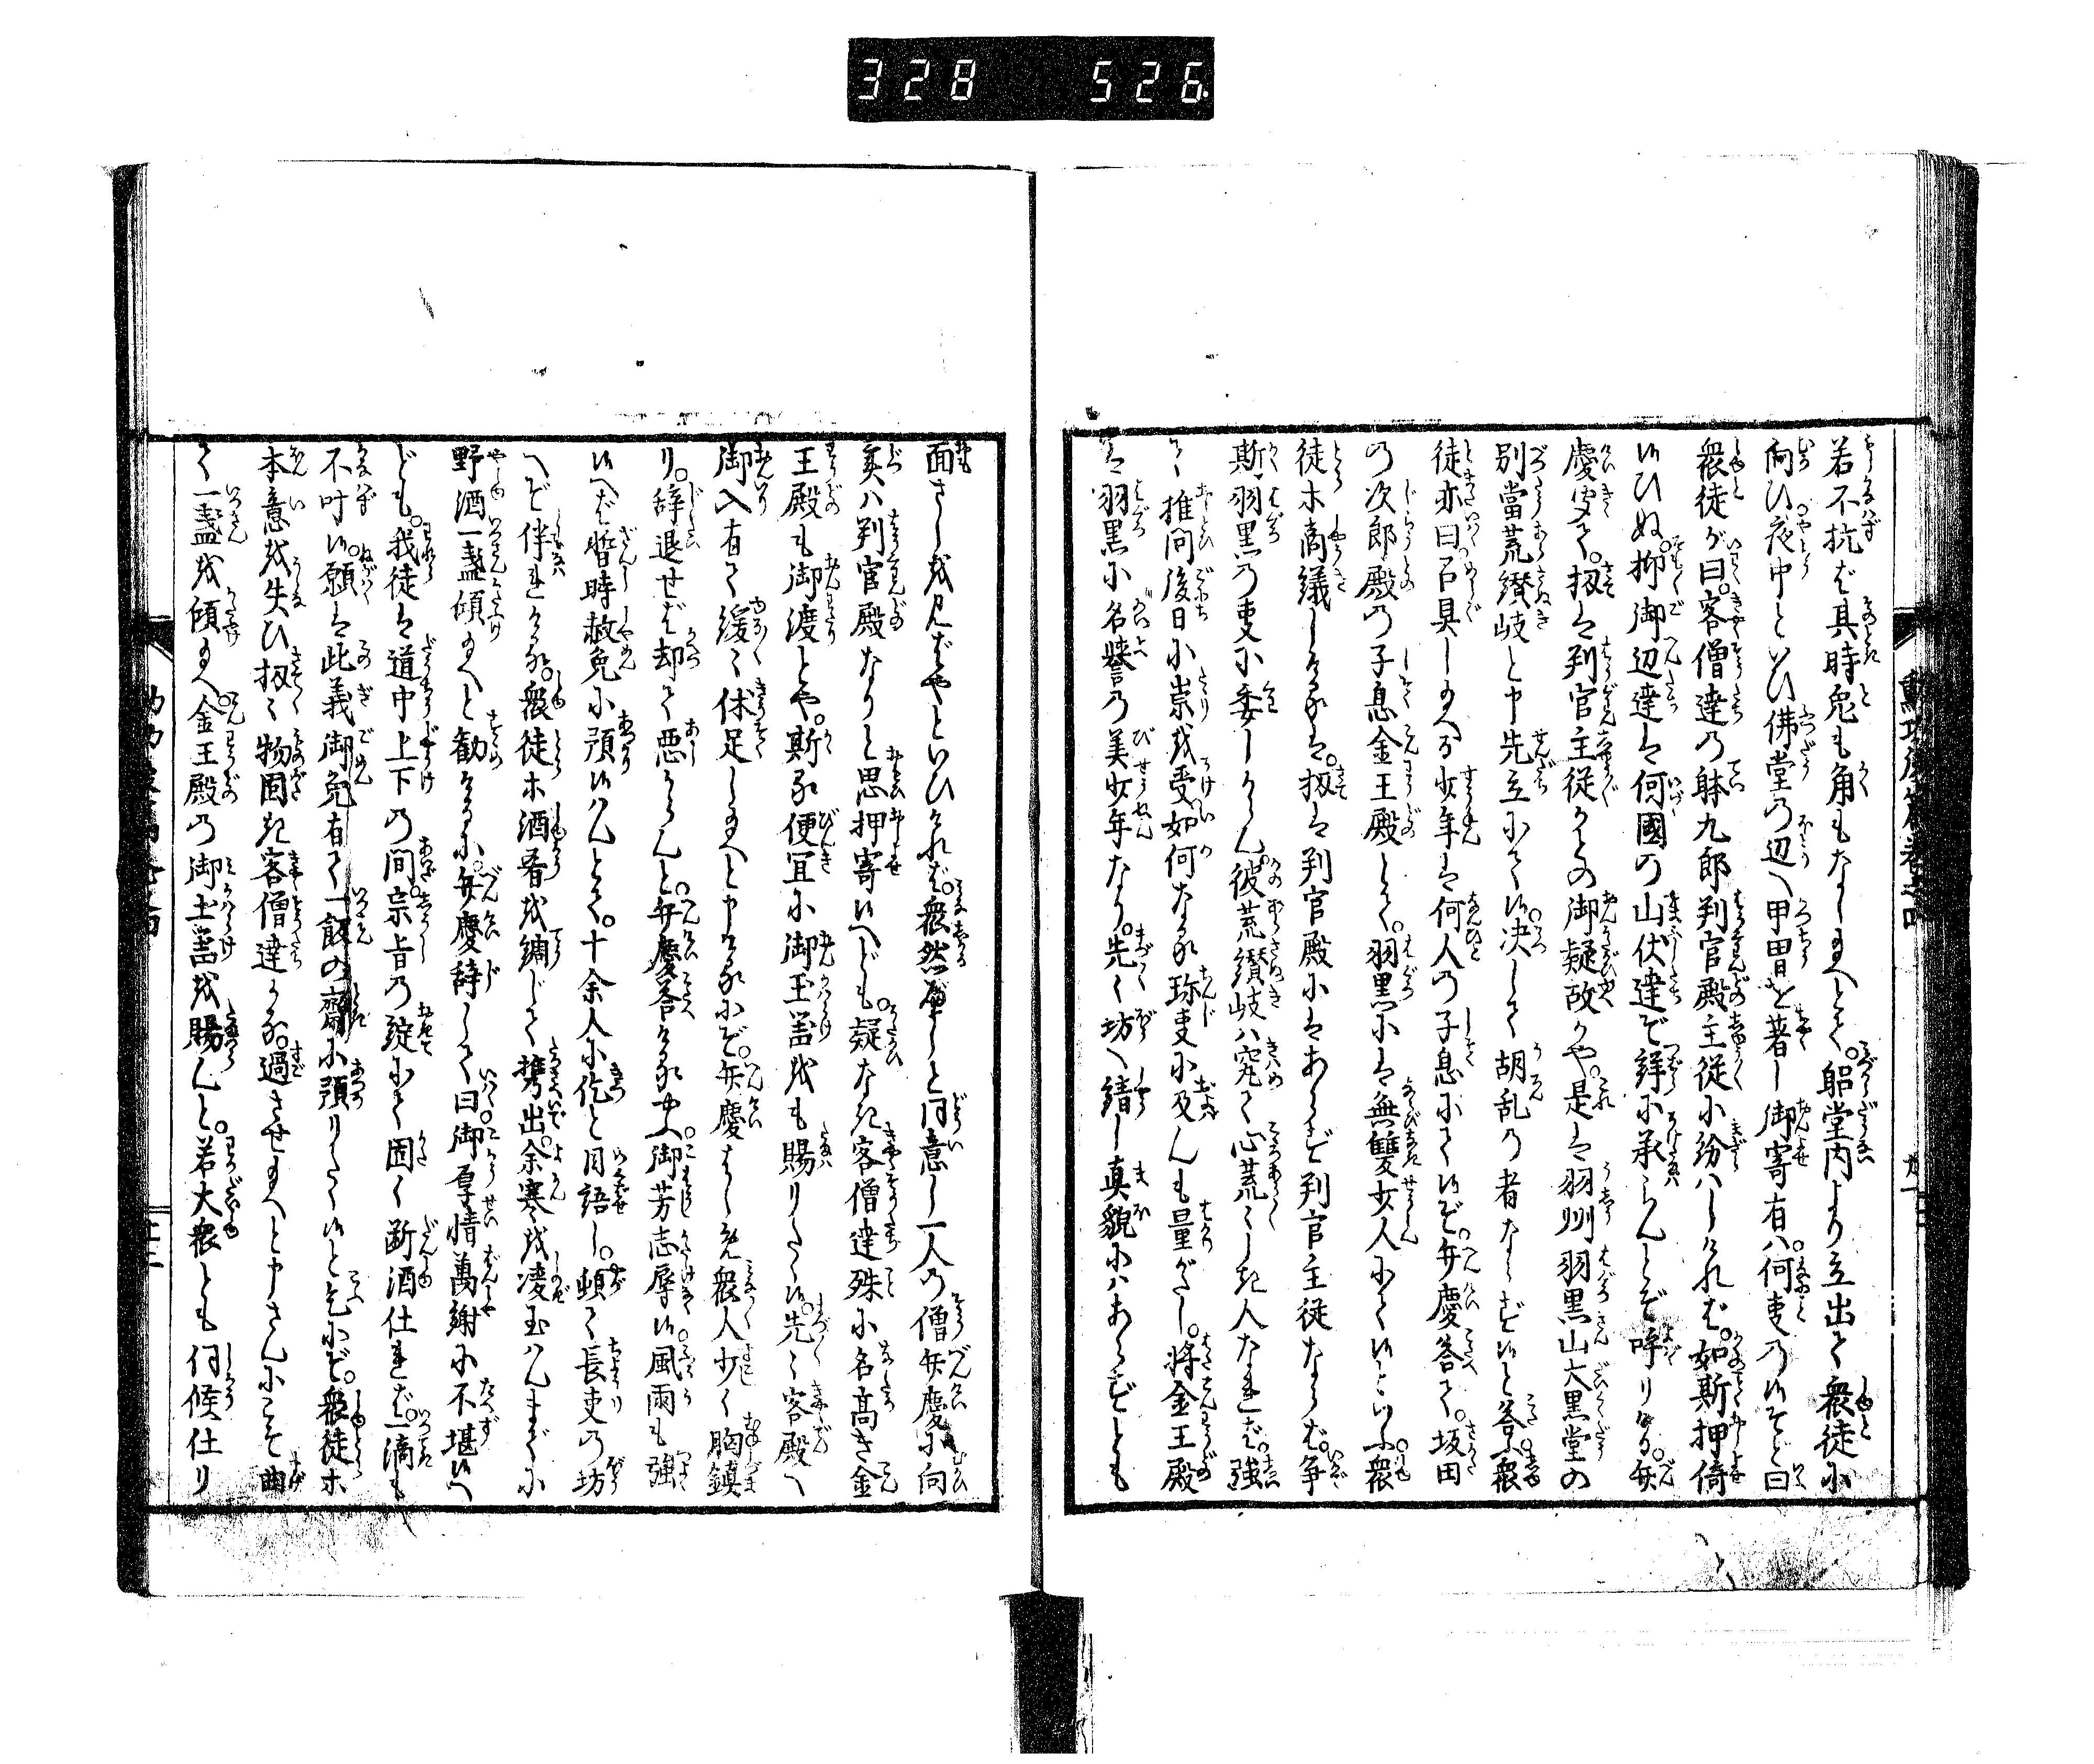 328 526
若不抗ば其時兎も角もなし玉へとて。躬堂内より立出て衆徒に
向ひ。夜中といひ佛堂の辺へ甲冑を著し御寄有は。何事の候ぞと曰
衆徒が曰。客僧達の躰九郎判官殿主従に紛はしければ。如斯押倚
候ひぬ。抑御辺達は何國の山伏達ぞ詳に承らんとぞ呼りける。弁
慶聞て。扨は判官主従かとの御疑故かや。是は羽州羽黒山大黒堂の
別當荒讃岐と申先立にて候。决して胡乱の者ならず候と答ふ。衆
徒亦曰。召具し玉へる少年は何人の子息にて候ぞ。弁慶答て。坂田
の次郎殿の子息金王殿とて。羽黒にも無雙少人にて候といふ。衆
徒ホ商議しけるは。扨は判官殿にはあらず判官主従ならば。争
斯羽黒の事に委しからん。彼荒讃岐ハ究て心荒〻しき人なれば。強
て推問後日に崇を受如何なる珎事に及んも量がたし。将金王殿
は羽黒に名誉の美少年なり。先〻坊へ請し真貌にハあらずとも
面ざしを見ばやといひければ。衆然るべしと同意し一人の僧弁慶に向
実ハ判官殿なりと思押寄候へども。疑なき客僧達殊に名高き金
王殿も御渡とや。斯る便冝に御土器をも賜りたく候。先〻客殿へ
御入有て緩〻休足し玉へと申けるにぞ。弁慶はじめ衆人少く胸鎮
り。辞退せば却て悪からんと。弁慶答けるやふ。御芳志辱候。風雨も強
候へば暫時赦免に預候はんとて。十余人に佐と目語し。頓て長吏の坊
へぞ伴れける。衆徒ホ酒肴を調じて携出。余寒を凌玉はんまでに
野酒一盞傾玉へと勧けるに。弁慶辞して曰。御厚情萬謝に不堪候へ
ども。我徒は道中上下の間。宗旨の掟にて固く断酒仕れば。一滴も
不叶候。願は此義御免有て一飯の齋に預りたく候と乞にぞ。衆徒ホ
本意を失ひ扨〻物固き客僧達かな。過させ玉へと申さんにこそ曲
て一盞を傾玉へ。金王殿の御土器を賜んと。若大衆とも伺候仕り